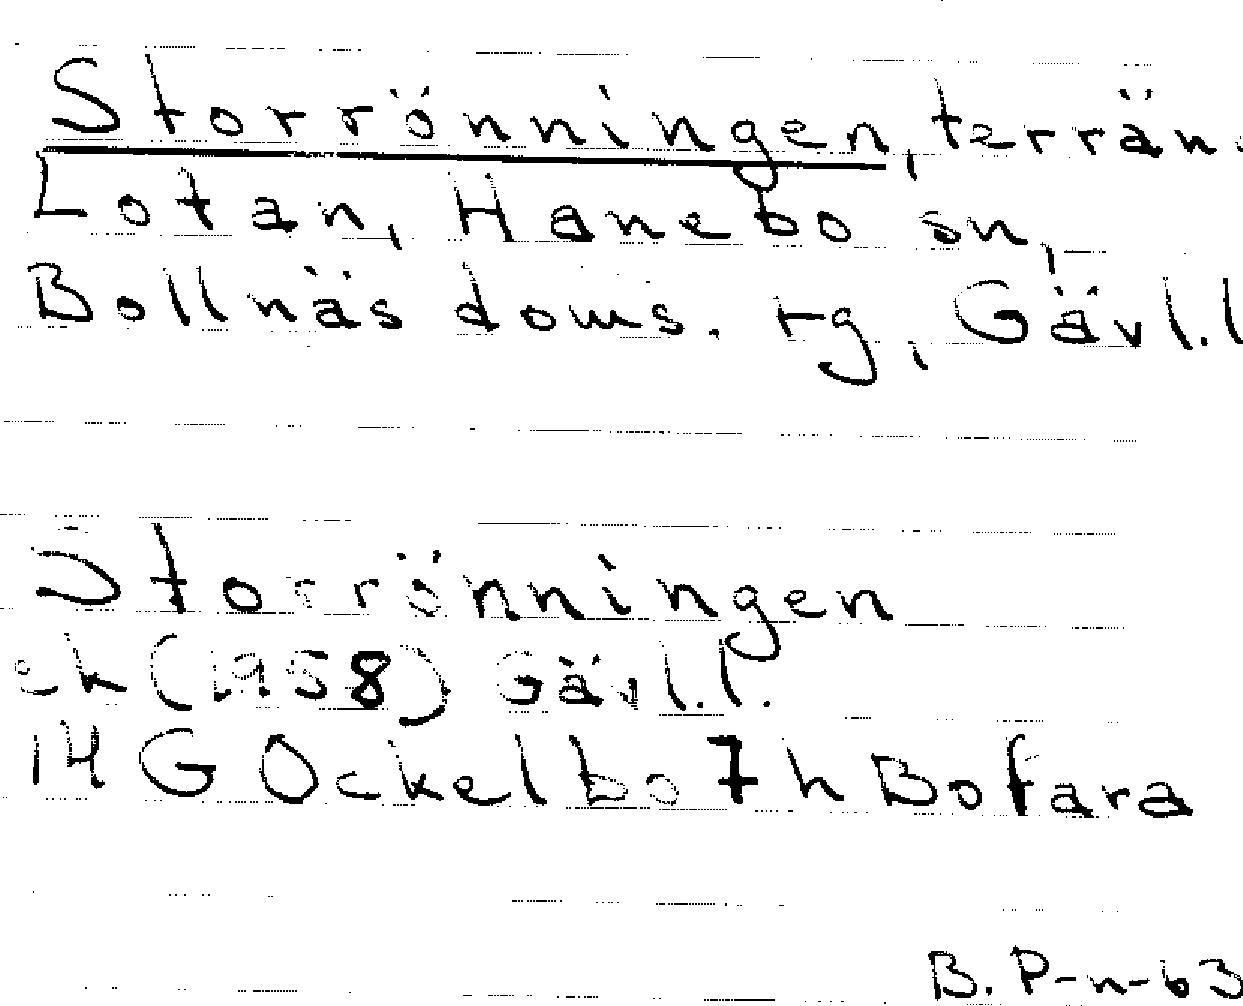 Storrönningen, terrän.
Lotan, Hanebo sn,
Bollnäs doms. rg, Gävl.l
Storrönningen
ek (1958) Gävl.l.
14 G Ockelbo 7 h Bofara
B. P-n-63